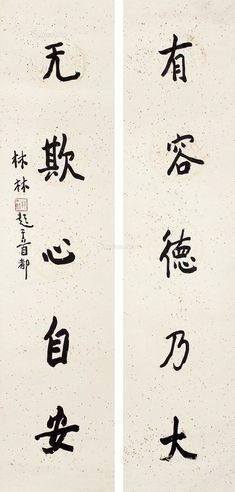 有容德乃大
无欺心自安
林林
题于首都